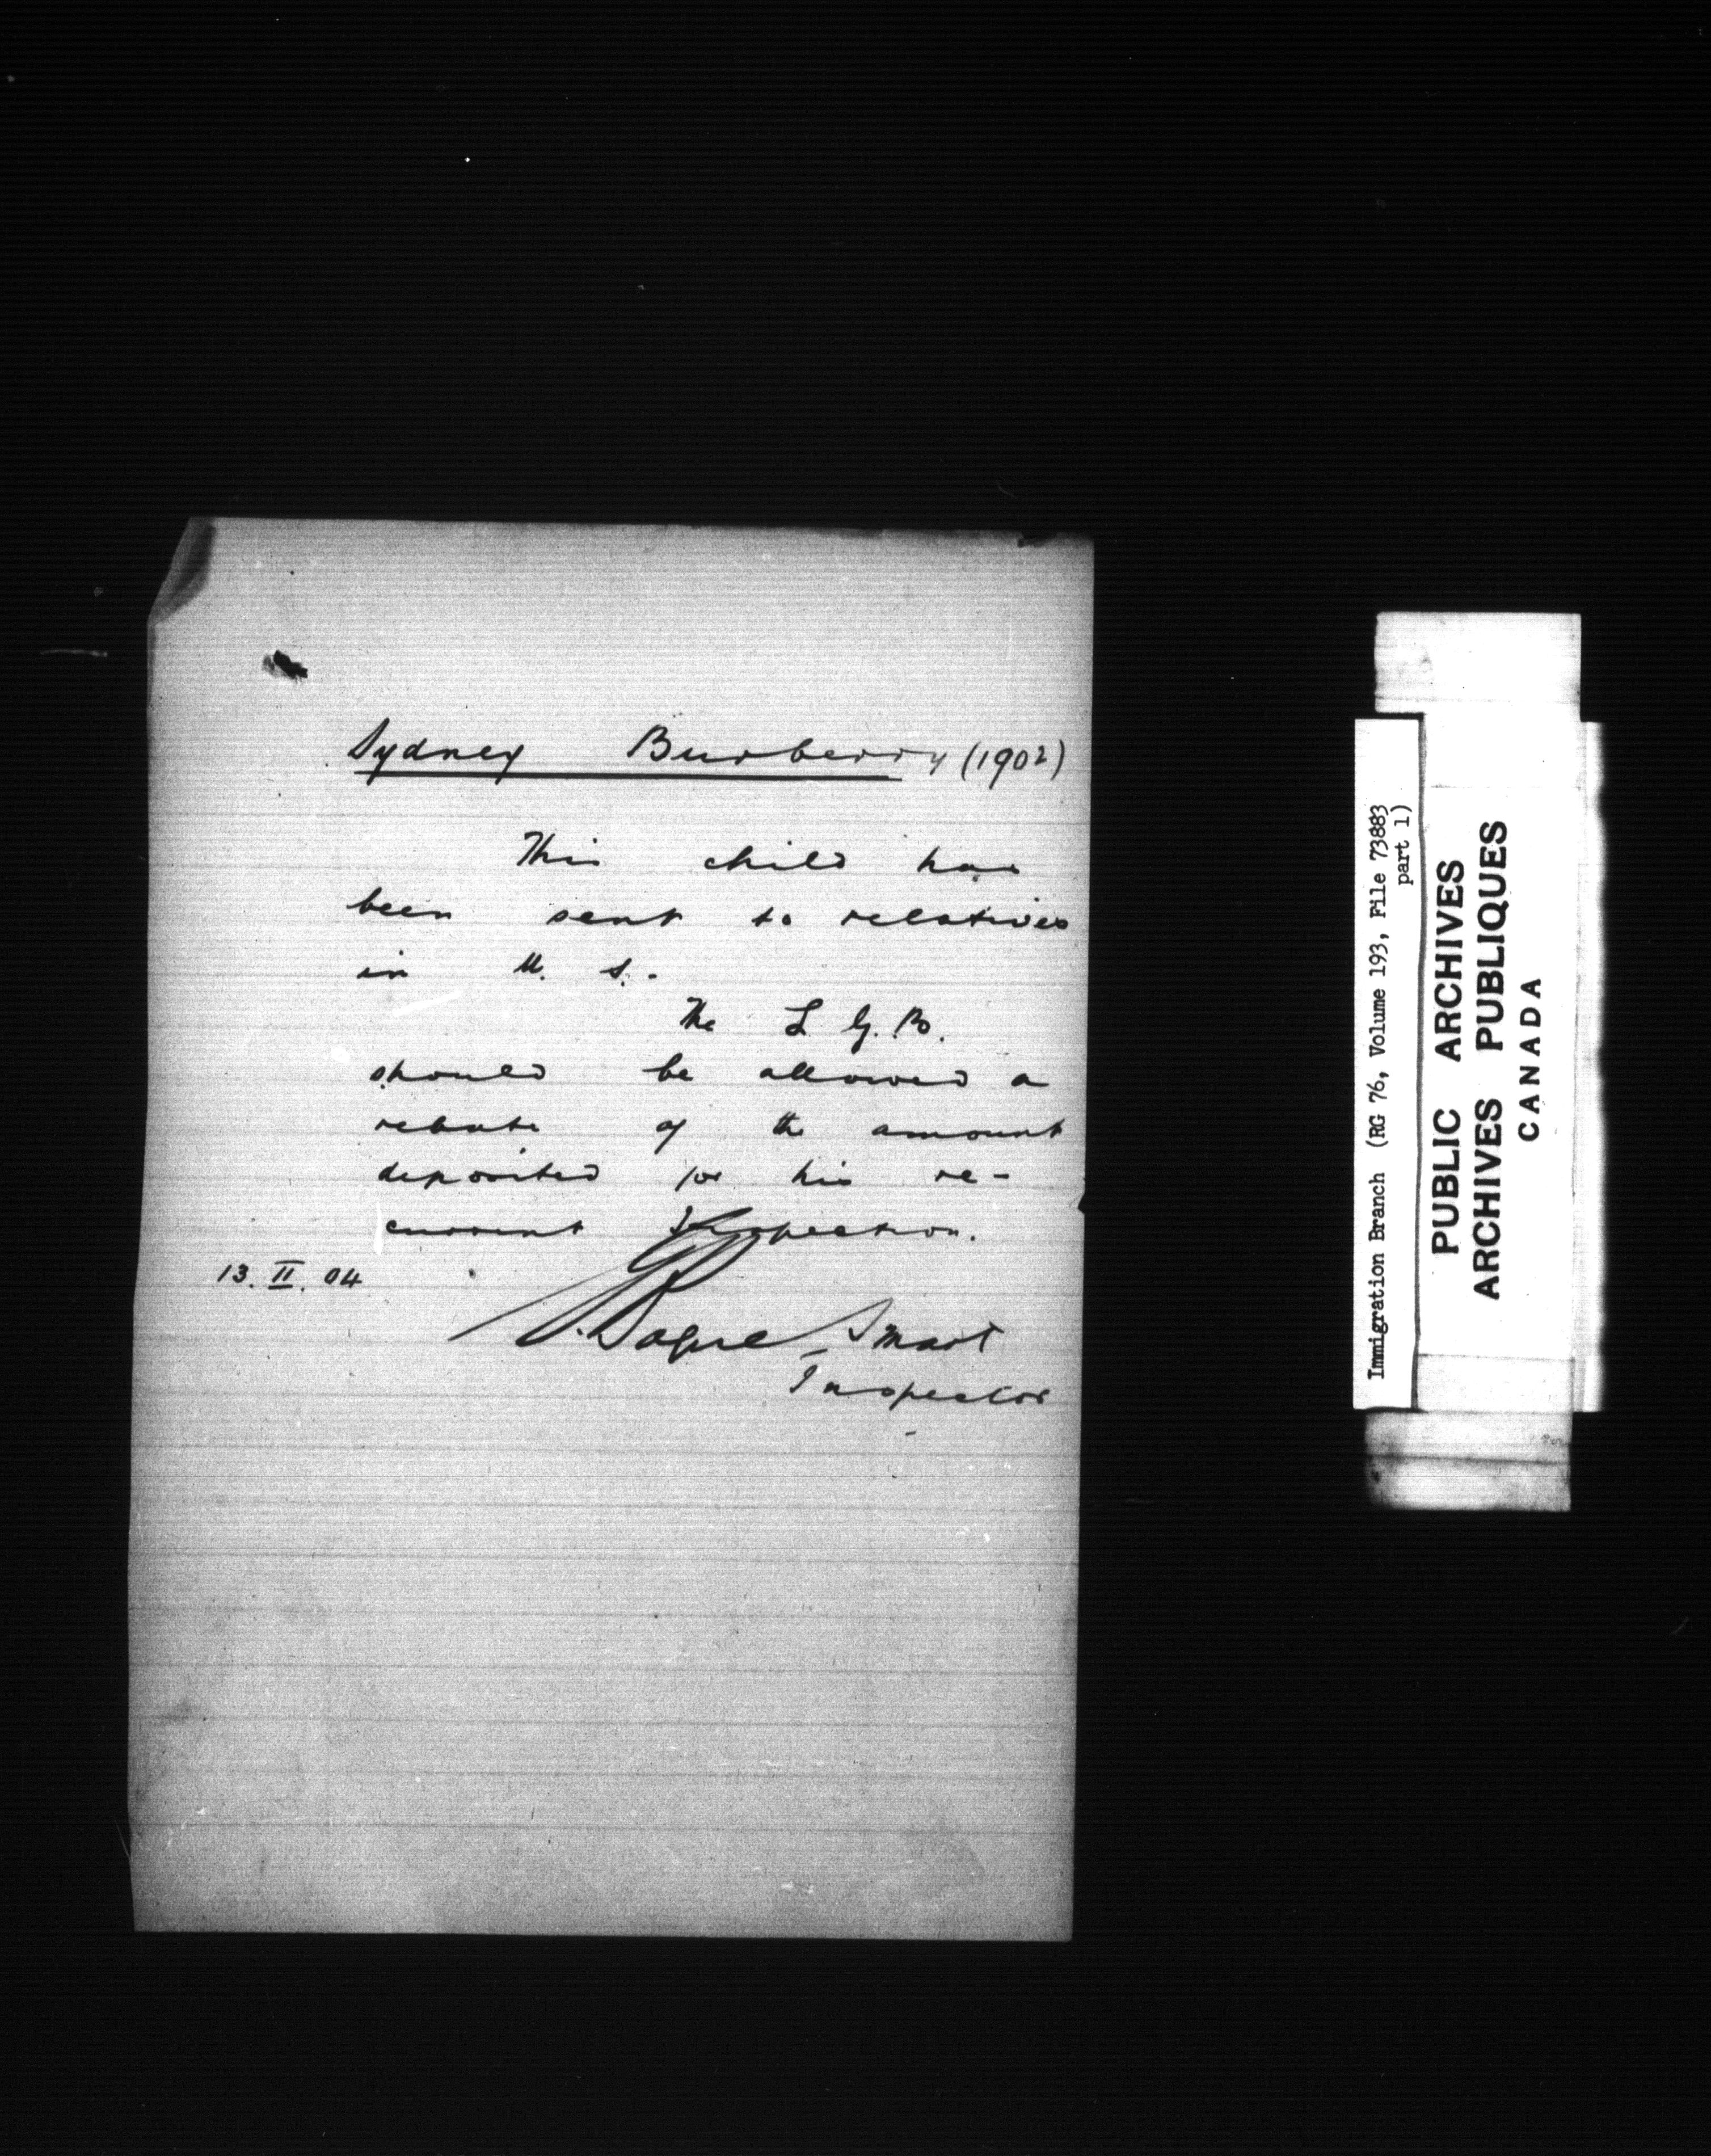 Sydney Burberry (1902)
This child has
been sent to relatives
in U. S.
The L. G. B.
should be allowed a
rebate of the amount
deposited for his re-
current Inspection.
13. II. 04
G. Bogue Smart
Inspector
Immigration Branch (RG 76, Volume 193, File 73883
part 1)
PUBLIC ARCHIVES
ARCHIVES PUBLIQUES
CANADA